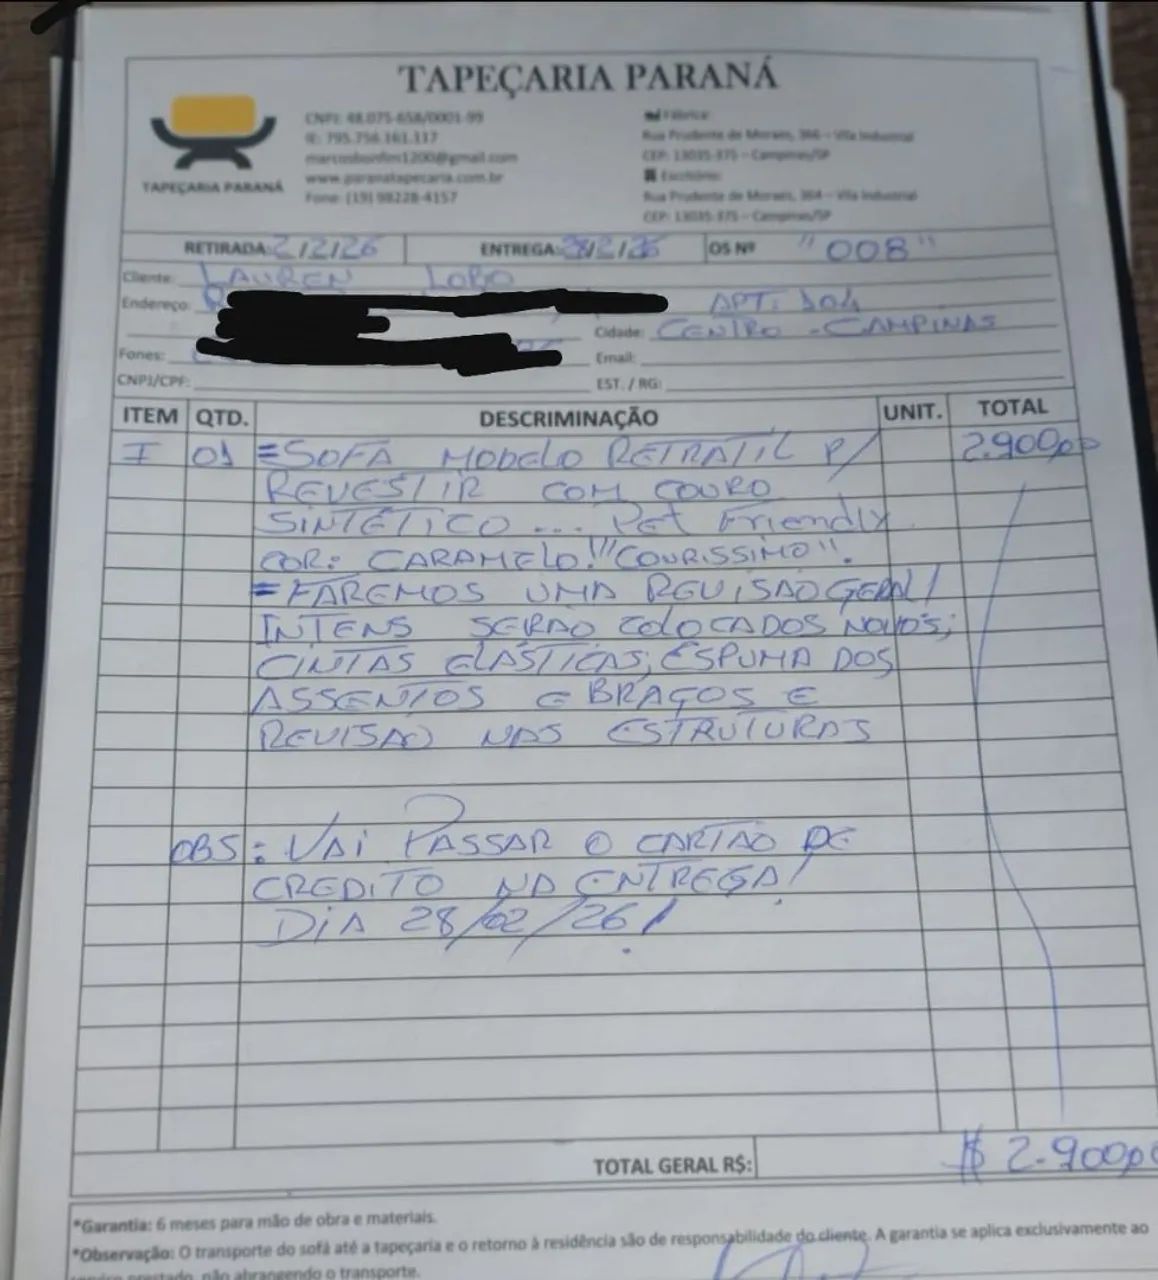 TAPEÇARIA PARANÁ
CNPJ: 48.075-658/0001-99
IE: 795.756.161.117
marcosbonfim1200@gmail.com
www.paranatapecaria.com.br
Fone: (19) 98228-4157
Fábrica:
Rua Prudente de Moraes, 366 - Vila Industrial
CEP: 13035-375 - Campinas/SP
Escritório:
Rua Prudente de Moraes, 364 - Vila Industrial
CEP: 13035-375 - Campinas/SP
TAPEÇARIA PARANÁ
RETIRADA: 2/2/26 ENTREGA: 28/2/26 OS Nº "008"
Cliente: LAUREN LOBO
Endereço: APT: 104
Cidade: CENTRO - CAMPINAS
Fones: Email:
CNPJ/CPF: EST. / RG:
ITEM QTD. DESCRIMINAÇÃO UNIT. TOTAL
I 01 =SOFA MODELO RETRATIL P/ 2.900,00
REVESTIR COM COURO
SINTÉTICO ... Pet Friendly
COR: CARAMELO! "COURISSIMO".
=FAREMOS UMA REVISAO GERAL!
INTENS SERÃO COLOCADOS NOVOS;
CINTAS ELÁSTICAS, ESPUMA DOS
ASSENTOS E BRAÇOS E
REVISÃO NAS ESTRUTURAS
OBS: VAI PASSAR O CARTÃO DE
CREDITO NA ENTREGA!
DIA 28/02/26!
TOTAL GERAL R$: $ 2.900,00
*Garantia: 6 meses para mão de obra e materiais.
*Observação: O transporte do sofá até a tapeçaria e o retorno à residência são de responsabilidade do cliente. A garantia se aplica exclusivamente ao
serviço prestado, não abrangendo o transporte.